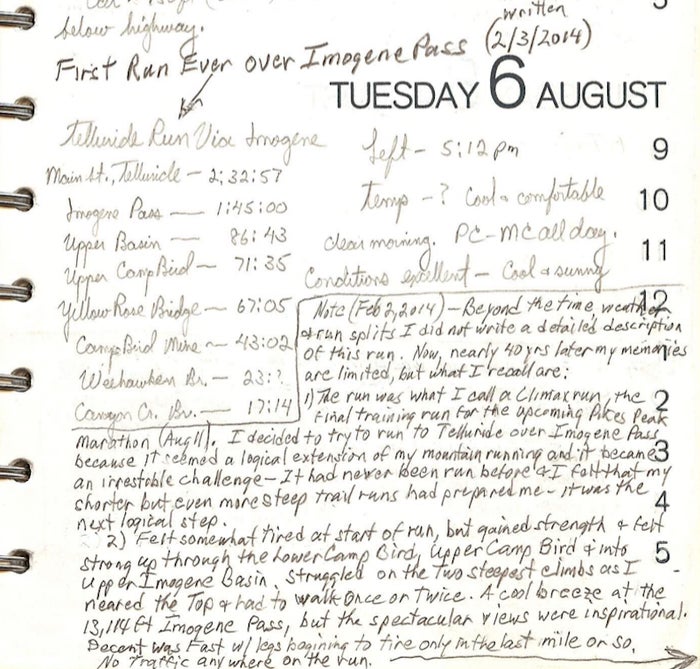 below highway.
written
First Run Ever over Imogene Pass (2/3/2014)
TUESDAY 6 AUGUST
Telluride Run Via Imogene
Main St., Telluride — 2:32:57
Imogene Pass — 1:45:00
Upper Basin — 86:43
Upper Camp Bird — 71:35
Yellow Rose Bridge — 67:05
Camp Bird Mine — 43:02
Weehawken Br. — 23:?
Canyon Cr. Br. — 17:14
Left — 5:12 pm
temp — ? Cool & comfortable
clear morning. PC - MC all day.
Conditions excellent — Cool & sunny
9
10
11
12
1
2
3
4
5
Note (Feb 2, 2014) — Beyond the time, weather
& run splits I did not write a detailed description
of this run. Now, nearly 40 yrs later my memories
are limited, but what I recall are:
1) The run was what I call a Climax run, the
final training run for the upcoming Pikes Peak
Marathon (Aug 11). I decided to try to run to Telluride over Imogene Pass
because it seemed a logical extension of my mountain running and it became
an irrestoble challenge — It had never been run before & I felt that my
shorter but even more steep trail runs had prepared me — it was the
next logical step.
2) Felt somewhat tired at start of run, but gained strength & felt
strong up through the Lower Camp Bird, Upper Camp Bird & into
Upper Imogene Basin. Struggled on the two steepest climbs as I
neared the Top & had to walk once or twice. A cool breeze at the
13,114 ft Imogene Pass, but the spectacular views were inspirational.
Decent was Fast w/ legs begining to tire only in the last mile or so.
No Traffic any where on the run.